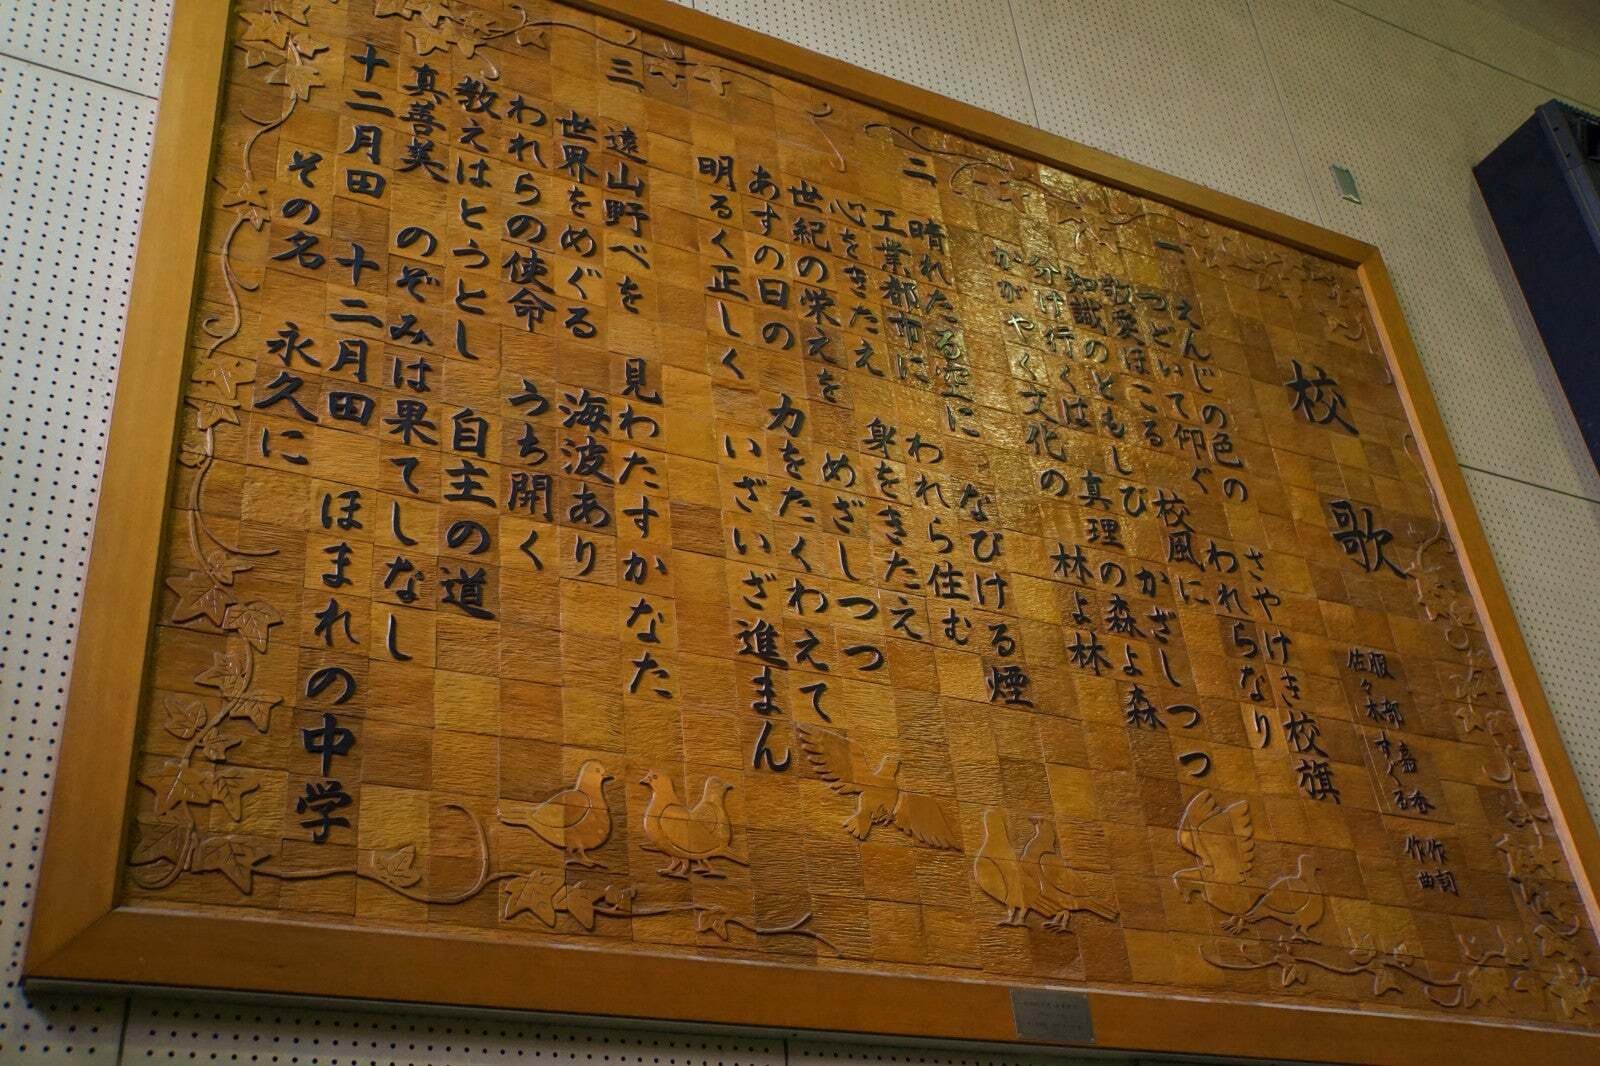 校歌
服部嘉香 作詞
佐々木すぐる 作曲
一 えんじの色の さやけき校旗
つどいて仰ぐ われらなり
敬愛ほこる 校風に
知識のともしび かざしつつ
分け行くは 真理の森よ森
かがやく文化の 林よ林
二 晴れたる空に なびける煙
工業都市に われら住む
心をきたえ 身をきたえ
世紀の栄えを めざしつつ
あすの日の 力をたくわえて
明るく正しく いざいざ進まん
三 遠山野べを 見わたすかなた
世界をめぐる 海波あり
われらの使命 うち開く
教えはとうとし 自主の道
真善美 のぞみは果てしなし
十二月田 十二月田 ほまれの中学
その名 永久に